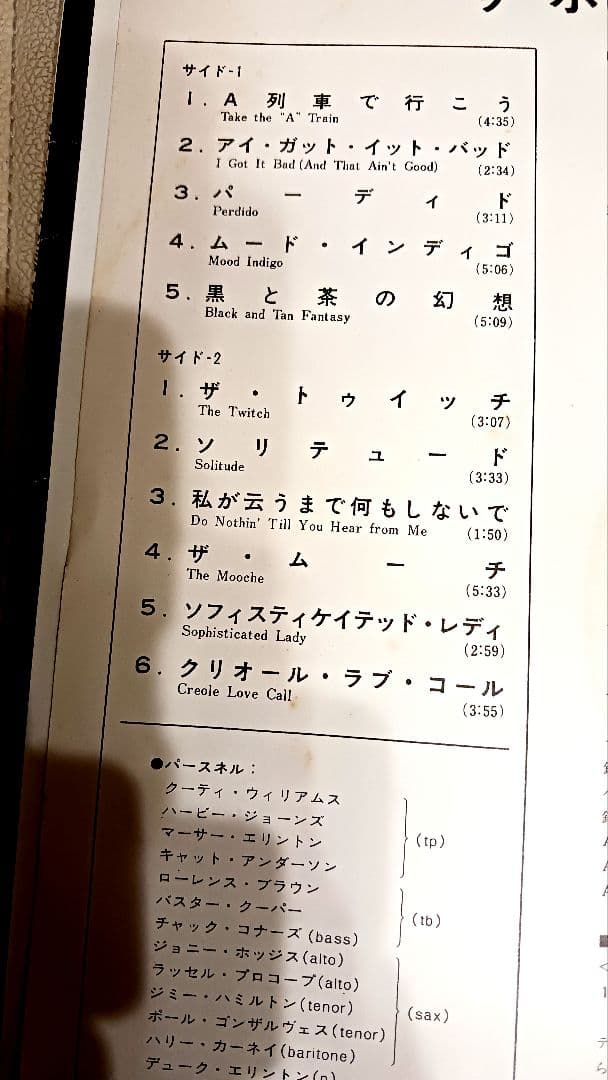 サイド-1
1. A列車で行こう
Take the "A" Train (4:35)
2. アイ・ガット・イット・バッド
I Got It Bad (And That Ain't Good) (2:34)
3. パーディド
Perdido (3:11)
4. ムード・インディゴ
Mood Indigo (5:06)
5. 黒と茶の幻想
Black and Tan Fantasy (5:09)
サイド-2
1. ザ・トゥイッチ
The Twitch (3:07)
2. ソリテュード
Solitude (3:33)
3. 私が云うまで何もしないで
Do Nothin' Till You Hear from Me (1:50)
4. ザ・ムーチ
The Mooche (5:33)
5. ソフィスティケイテッド・レディ
Sophisticated Lady (2:59)
6. クリオール・ラブ・コール
Creole Love Call (3:55)
●パースネル:
クーティ・ウィリアムス
ハービー・ジョーンズ
マーサー・エリントン
キャット・アンダーソン
(tp)
ローレンス・ブラウン
バスター・クーパー
チャック・コナーズ (bass)
(tb)
ジョニー・ホッジス(alto)
ラッセル・プロコープ(alto)
ジミー・ハミルトン(tenor)
ポール・ゴンザルヴェス(tenor)
ハリー・カーネイ(baritone)
(sax)
デューク・エリントン(p)